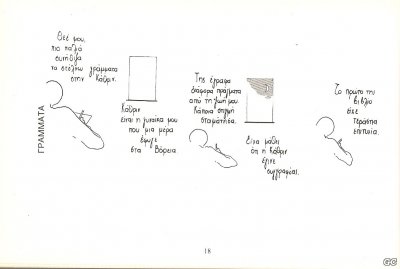 ΓΡΑΜΜΑΤΑ
Θεέ μου,
πιο παλιά
συνήθιζα
να στέλνω γράμματα
στην Κάθριν.
Κάθριν
είναι η γυναίκα μου
που μια μέρα
έφυγε
στα Βόρεια.
Της έγραφα
διάφορα πράγματα
από τη ζωή μου
Κάποια στιγμή
σταμάτησα.
Είχα μάθει
ότι η Κάθριν
έγινε
συγγραφέας.
Το πρώτο της
βιβλίο
είχε
τεράστια
επιτυχία.
18
GC